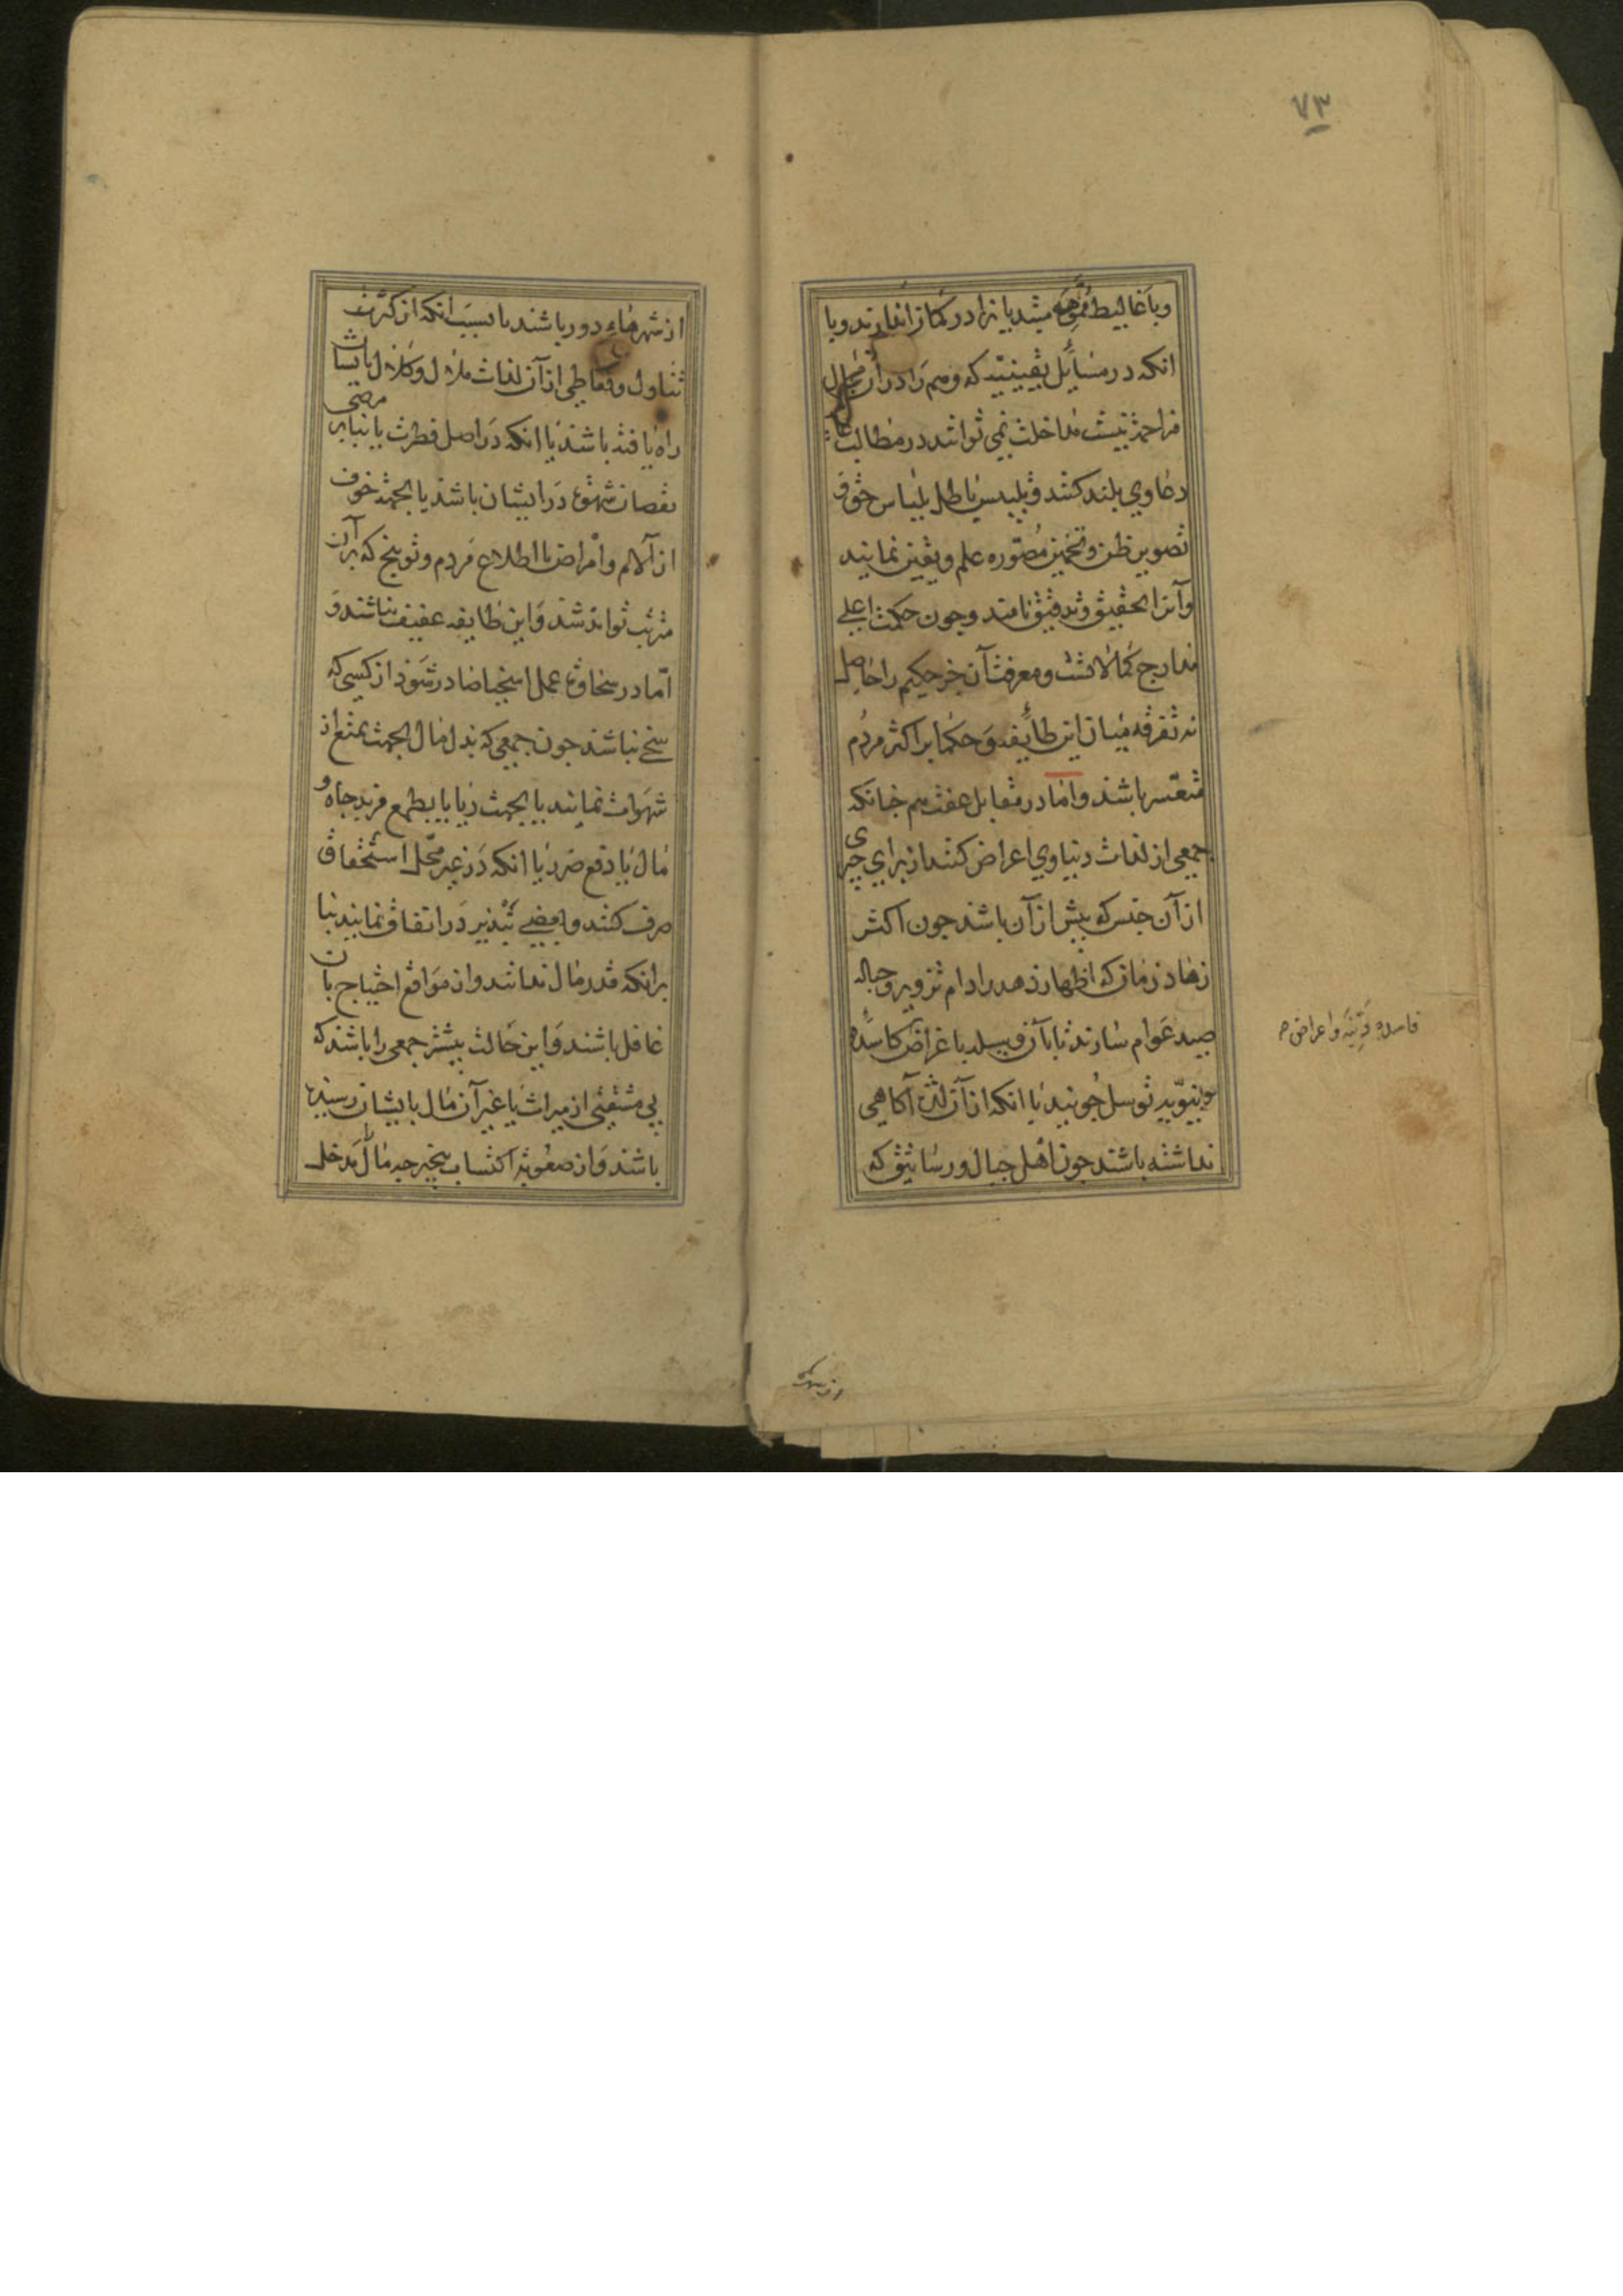 ۷۳
وباغالیط مموهه مبتدیانرا در کمان اندازند و با
انکه در مسایل یقینیه که وهم را در آن مجال
مزاحمت نیست مداخلت نمی توانند در مطالب
دعاوی بلند کنند و بتلبیس باطل بلباس حق و
تصویر ظن و تخمین بصوره علم و یقین نمایند
وآنرا تحقیق و تدقیق نامند و چون حکمت اعلی
مدارج کمالاتست و معرفت آن جز حکیم را حاصل
نه تفرقه میان این طایفه و حکما بر اکثر مردم
متعسر باشد و اما در مقابل عفت هم چنانکه
جمعی از لذات دنیاوی اعراض کنند از برای چیزی
از آن جنس که بیش از آن باشد چون اکثر
زهاد زمان که اظهار زهد را دام تزویر و حباله
صید عوام سازند تا بآن وسیله باغراض کاسده
دنیویه توسل جویند یا انکه از آن لذت آکاهی
نداشته باشند چون اهل جبال و رساتیق که
فاسده دنیه و اعراض
از شهرها دور باشند یا بسبب انکه از کثرت
تناول و تعاطی از آن لذات ملال و کلال بایشان
راه یافته باشد یا انکه در اصل فطرت یا بنابر مرضی
نقصان شهوة در ایشان باشد یا بجهة خوف
از آلام و امراض یا اطلاع مردم و توبیخ که بر آن
مترتب تواند شد و این طایفه عفیف نباشند و
اما در سخاوة عمل اسخیا صادر شود از کسی که
سخی نباشد چون جمعی که بذل مال بجهت تمتع از
شهوات نمایند یا بجهت ریا یا بطمع مزید جاه و
مال یا دفع ضرر یا انکه در غیر محل استحقاق
صرف کنند و بعضی تبذیر در انفاق نمایند بنا
برانکه قدر مال ندانند و از مواقع احتیاج بآن
غافل باشند و این حالت بیشتر جمعی را باشد که
بی مشقتی از میراث یا غیر آن مال بایشان رسیده
باشد و از صعوبة اکتساب بیخبر چه مال را مدخل